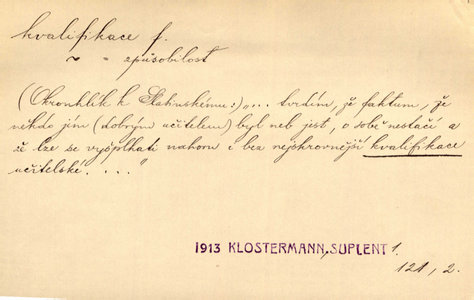 kvalifikace f.
~ " způsobilost
(Okrouhlík k Slatinskému:) „... tvrdím, že faktum, že
někdo jím (dobrým učitelem) byl neb jest, o sobě nestačí a
že lze se vyšplhati nahoru i bez nejskrovnější kvalifikace
učitelské. ..."
1913 KLOSTERMANN, SUPLENT 1.
121, 2.